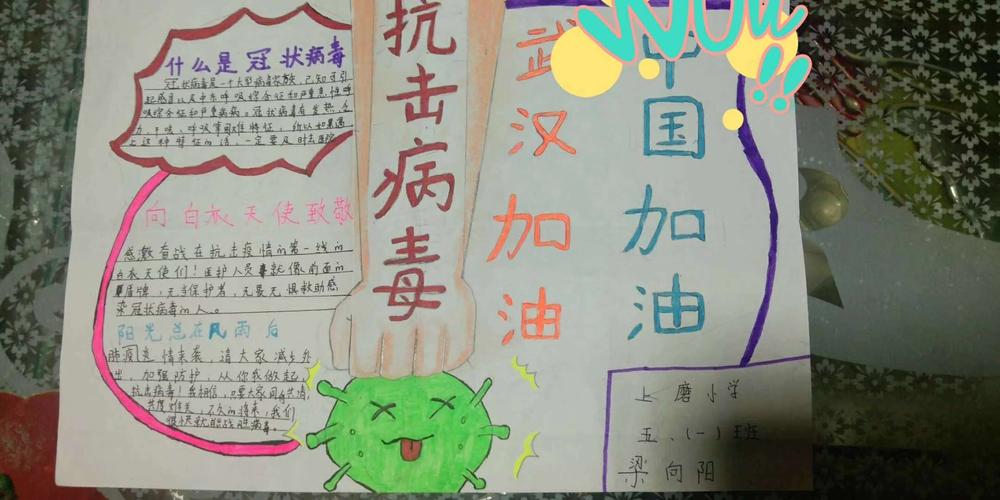 什么是冠状病毒
冠状病毒是一个大型病毒家族，已知可引
起感冒以及中东呼吸综合征和严重急性呼
吸综合征和严重疾病。冠状病毒有发热、乏
力、干咳、呼吸等困难特征，所以如果遇
上这种特征的话，一定要及时去医院
向白衣天使致敬
感激奋战在抗击疫情的第一线的
白衣天使们！医护人员就像前面的
盾牌，无当保护者，无畏无惧救助感
染冠状病毒的人。
阳光总在风雨后
肺炎疫情来袭，请大家减少外
出，加强防护，从你我做起，
抗击病毒！我相信，只要大家同舟共济，
共度难关，不久的将来，我们
很快就能战胜病毒。
抗击病毒
武汉加油
中国加油
Wow!!
上磨小学
五、(一)班
梁向阳